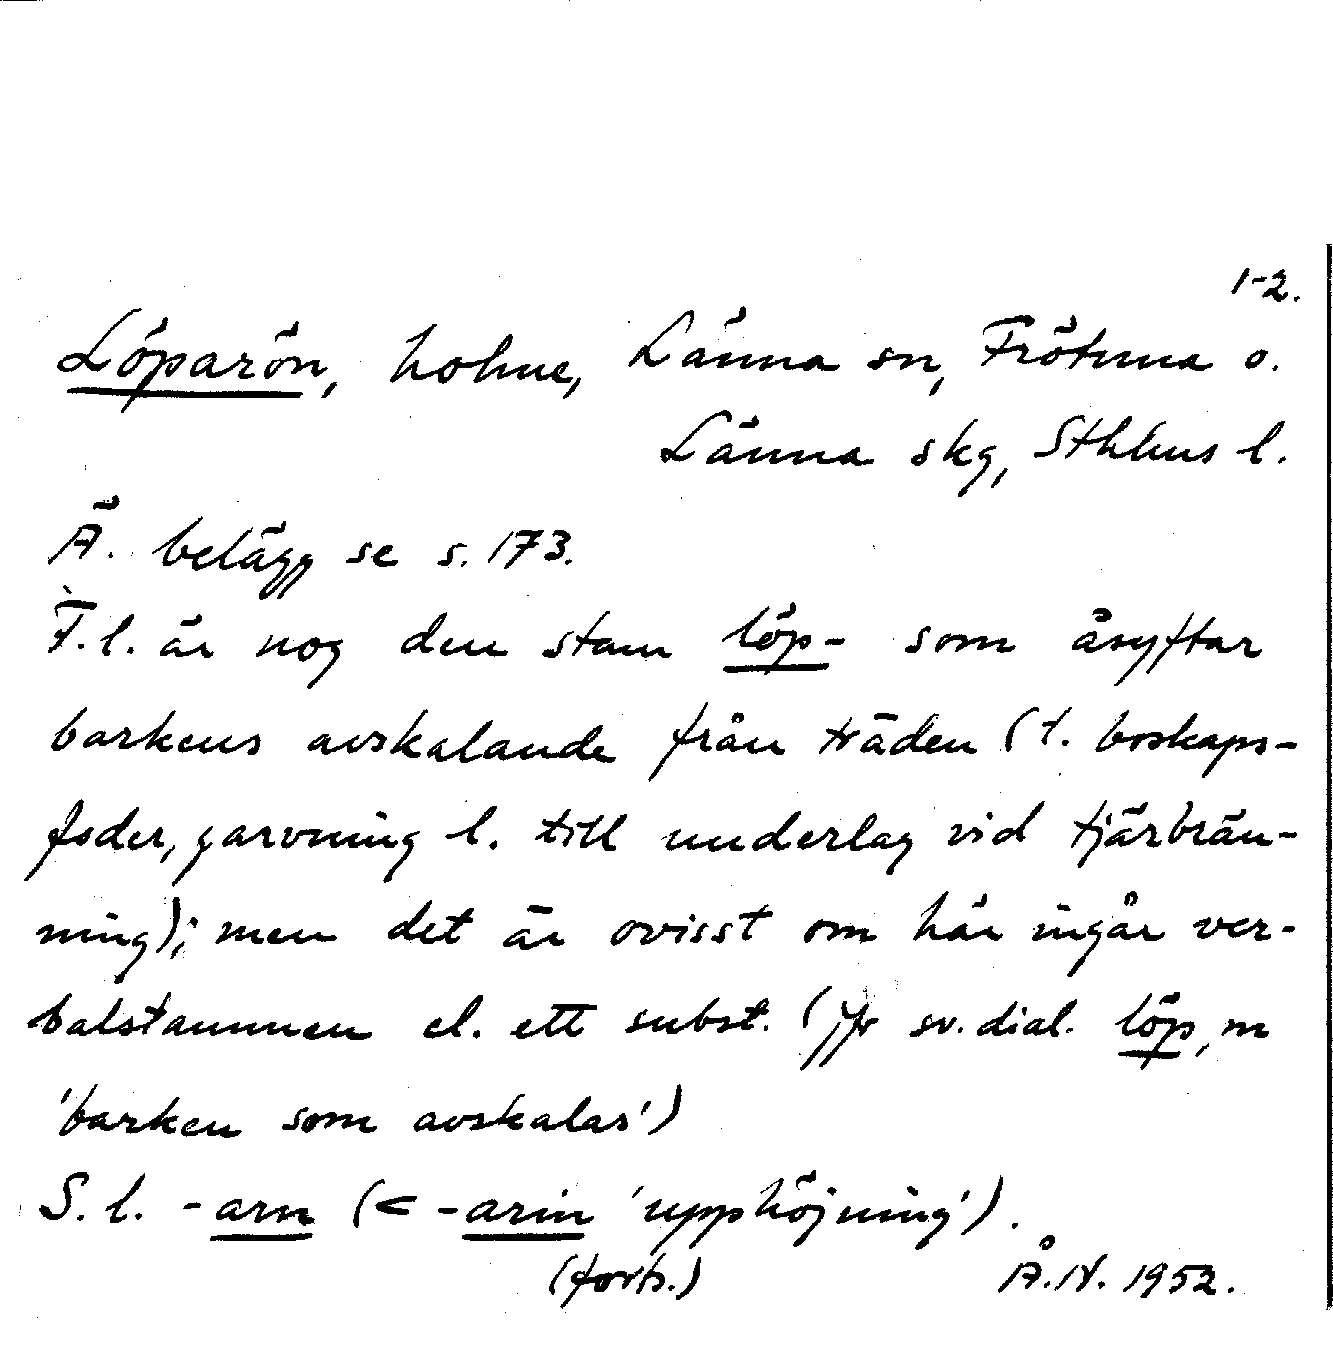 1-2.
Löparön, holme, Länna sn, Frötuna o.
Länna skg, Sthlms l.
Ä. belägg se s. 173.
F.l. är nog den stam löp- som åsyftar
barkens avskalande från träden (t. boskaps-
foder, garvning l. till underlag vid tjärbrän-
ning); men det är ovisst om här ingår ver-
balstammen el. ett subst. (jfr sv. dial. löp, m
'barken som avskalas')
S. l. -arn (< -arin 'upphöjning').
(forts.) Å.N. 1952.